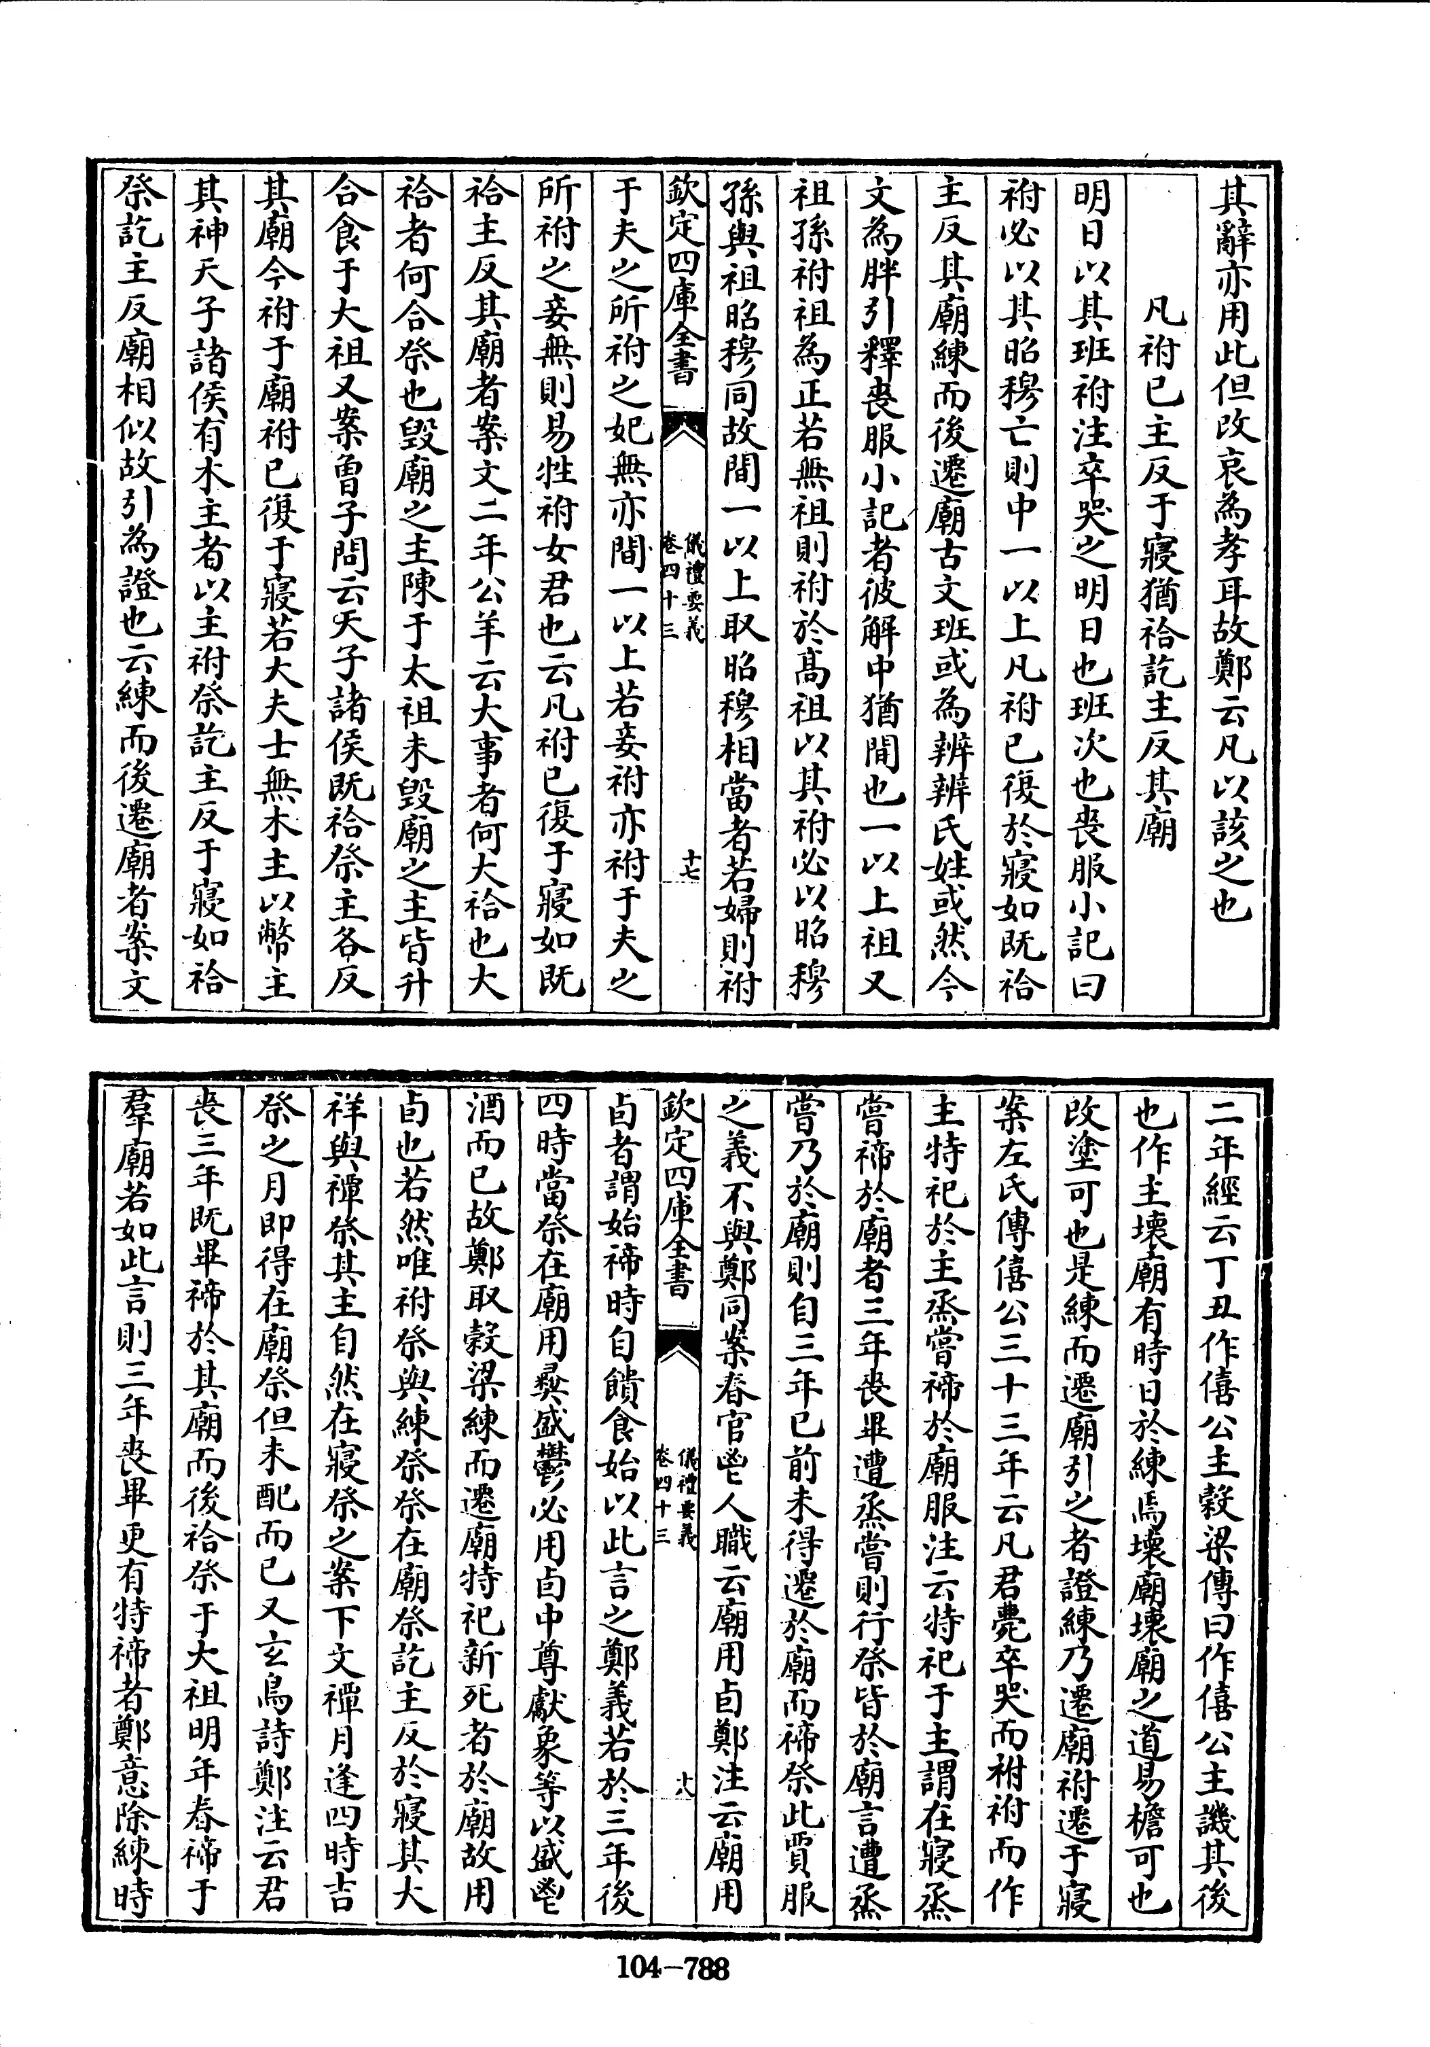 其辭亦用此但改哀為孝耳故鄭云凡以該之也
凡祔已主反于寢猶祫訖主反其廟
明日以其班祔注卒哭之明日也班次也喪服小記曰
祔必以其昭穆亡則中一以上凡祔已復於寢如既祫
主反其廟練而後遷廟古文班或為辨辨氏姓或然今
文為胖引釋喪服小記者彼解中猶間也一以上祖又
祖孫祔祖為正若無祖則祔於高祖以其祔必以昭穆
孫與祖昭穆同故間一以上取昭穆相當者若婦則祔
欽定四庫全書
儀禮要義
卷四十三
十七
于夫之所祔之妃無亦間一以上若妾祔亦祔于夫之
所祔之妾無則易牲祔女君也云凡祔已復于寢如既
祫主反其廟者案文二年公羊云大事者何大祫也大
祫者何合祭也毀廟之主陳于太祖未毀廟之主皆升
合食于大祖又案曾子問云天子諸侯既祫祭主各反
其廟今祔于廟祔已復于寢若大夫士無木主以幣主
其神天子諸侯有木主者以主祔祭訖主反于寢如祫
祭訖主反廟相似故引為證也云練而後遷廟者案文
二年經云丁丑作僖公主穀梁傳曰作僖公主譏其後
也作主壞廟有時日於練焉壞廟壞廟之道易檐可也
改塗可也是練而遷廟引之者證練乃遷廟祔還于寢
案左氏傳僖公三十三年云凡君薨卒哭而祔祔而作
主特祀於主烝嘗禘於廟服注云特祀于主謂在寢烝
嘗禘於廟者三年喪畢遭烝嘗則行祭皆於廟言遭烝
嘗乃於廟則自三年已前未得遷於廟而禘祭此賈服
之義不與鄭同案春官鬯人職云廟用卣鄭注云廟用
欽定四庫全書
儀禮要義
卷四十三
十八
卣者謂始禘時自饋食始以此言之鄭義若於三年後
四時當祭在廟用彝盛鬱必用卣中尊獻象等以盛鬯
酒而已故鄭取穀梁練而遷廟特祀新死者於廟故用
卣也若然唯祔祭與練祭祭在廟祭訖主反於寢其大
祥與禫祭其主自然在寢祭之案下文禫月逢四時吉
祭之月即得在廟祭但未配而已又玄鳥詩鄭注云君
喪三年既畢禘於其廟而後祫祭于大祖明年春禘于
羣廟若如此言則三年喪畢更有特禘者鄭意除練時
104-788